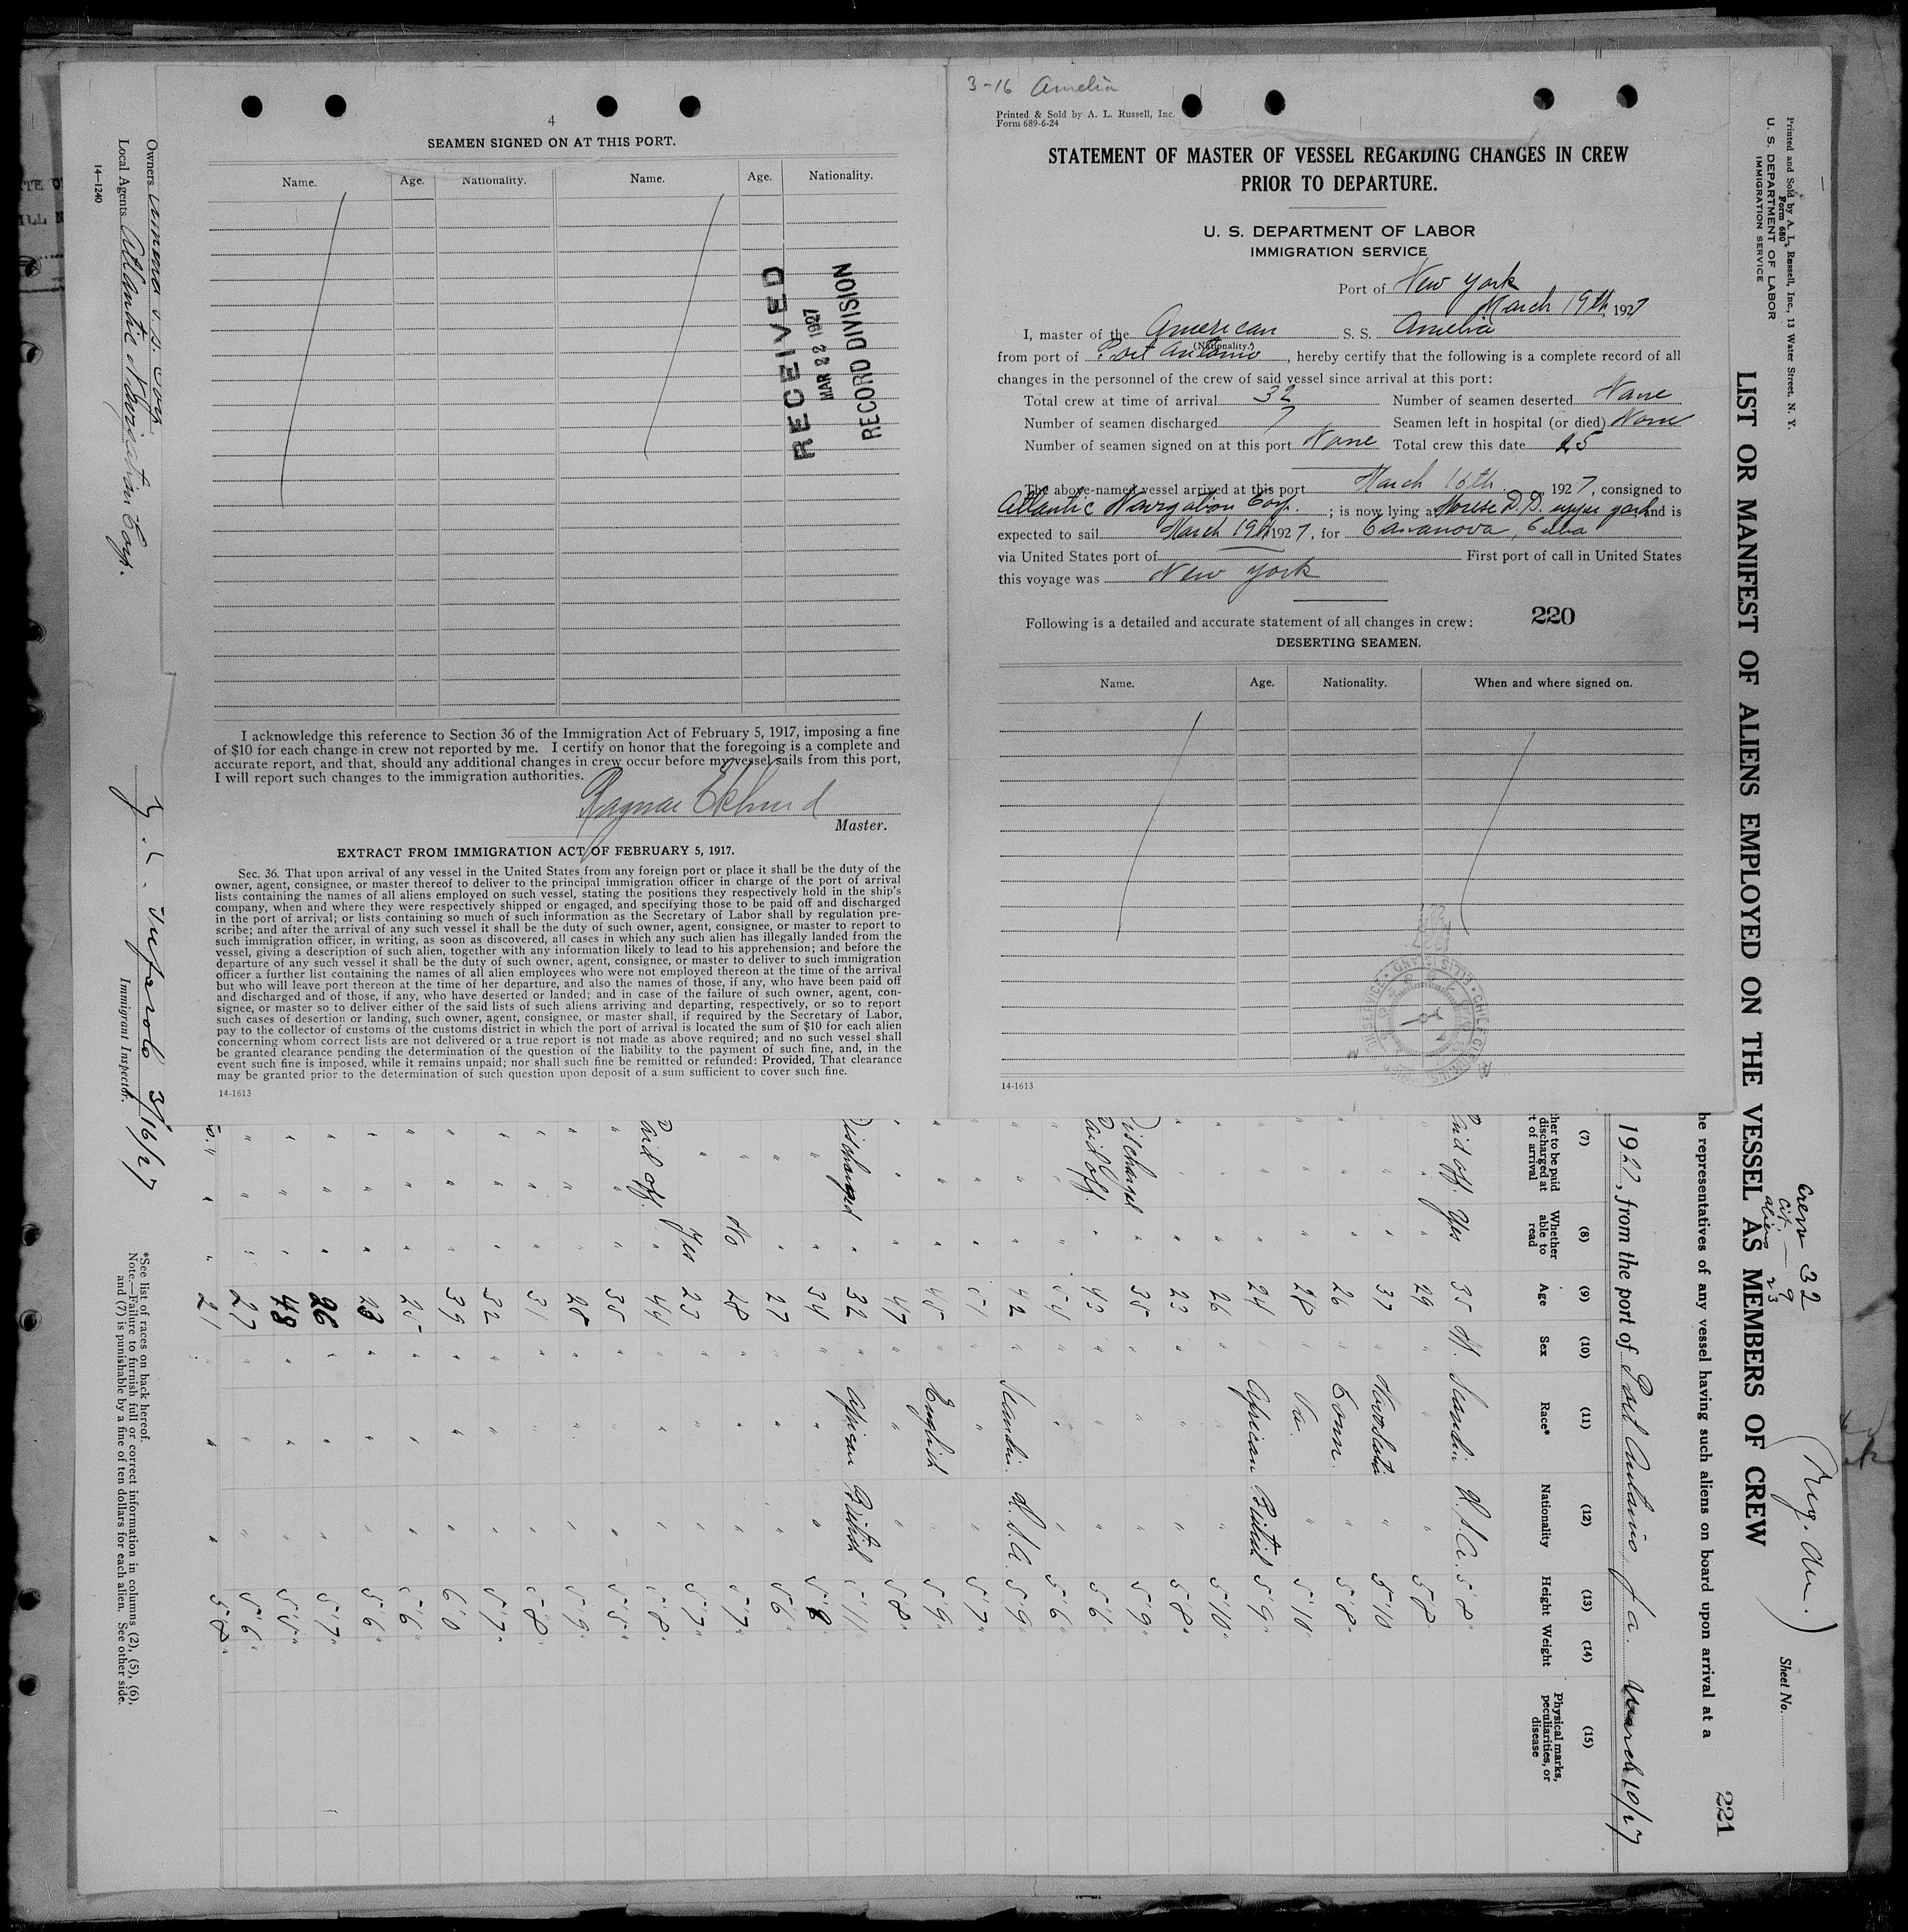 4
SEAMEN SIGNED ON AT THIS PORT.
Name. Age. Nationality. Name. Age. Nationality.
RECEIVED
MAR 22 1927
RECORD DIVISION
I acknowledge this reference to Section 36 of the Immigration Act of February 5, 1917, imposing a fine
of $10 for each change in crew not reported by me. I certify on honor that the foregoing is a complete and
accurate report, and that, should any additional changes in crew occur before my vessel sails from this port,
I will report such changes to the immigration authorities.
Ragnar Eklund
Master.
EXTRACT FROM IMMIGRATION ACT OF FEBRUARY 5, 1917.
Sec. 36. That upon arrival of any vessel in the United States from any foreign port or place it shall be the duty of the
owner, agent, consignee, or master thereof to deliver to the principal immigration officer in charge of the port of arrival
lists containing the names of all aliens employed on such vessel, stating the positions they respectively hold in the ship's
company, when and where they were respectively shipped or engaged, and specifying those to be paid off and discharged
in the port of arrival; or lists containing so much of such information as the Secretary of Labor shall by regulation pre-
scribe; and after the arrival of any such vessel it shall be the duty of such owner, agent, consignee, or master to report to
such immigration officer, in writing, as soon as discovered, all cases in which any such alien has illegally landed from the
vessel, giving a description of such alien, together with any information likely to lead to his apprehension; and before the
departure of any such vessel it shall be the duty of such owner, agent, consignee, or master to deliver to such immigration
officer a further list containing the names of all alien employees who were not employed thereon at the time of the arrival
but who will leave port thereon at the time of her departure, and also the names of those, if any, who have been paid off
and discharged and of those, if any, who have deserted or landed; and in case of the failure of such owner, agent, con-
signee, or master so to deliver either of the said lists of such aliens arriving and departing, respectively, or so to report
such cases of desertion or landing, such owner, agent, consignee, or master shall, if required by the Secretary of Labor,
pay to the collector of customs of the customs district in which the port of arrival is located the sum of $10 for each alien
concerning whom correct lists are not delivered or a true report is not made as above required; and no such vessel shall
be granted clearance pending the determination of the question of the liability to the payment of such fine, and, in the
event such fine is imposed, while it remains unpaid; nor shall such fine be remitted or refunded: Provided, That clearance
may be granted prior to the determination of such question upon deposit of a sum sufficient to cover such fine.
14-1613
3-16 Amelia
Printed & Sold by A. L. Russell, Inc.
Form 689-6-24
STATEMENT OF MASTER OF VESSEL REGARDING CHANGES IN CREW
PRIOR TO DEPARTURE.
U. S. DEPARTMENT OF LABOR
IMMIGRATION SERVICE
Port of New York
March 19th 1927
I, master of the American S. S. Amelia
(Nationality.)
from port of Port Antonio, hereby certify that the following is a complete record of all
changes in the personnel of the crew of said vessel since arrival at this port:
Total crew at time of arrival 32 Number of seamen deserted None
Number of seamen discharged 7 Seamen left in hospital (or died) None
Number of seamen signed on at this port None Total crew this date 25
The above-named vessel arrived at this port March 16th, 1927, consigned to
Atlantic Navigation Corp.; is now lying at Morse D.D. upper yard and is
expected to sail March 19th 1927, for Casanova, Cuba
via United States port of First port of call in United States
this voyage was New York
Following is a detailed and accurate statement of all changes in crew: 220
DESERTING SEAMEN.
Name. Age. Nationality. When and where signed on.
14-1613
Printed and Sold by A. L. Russell, Inc., 13 Water Street, N. Y.
Form 680
U. S. DEPARTMENT OF LABOR
IMMIGRATION SERVICE
LIST OR MANIFEST OF ALIENS EMPLOYED ON THE VESSEL AS MEMBERS OF CREW
crew 32
cit. — 9
aliens 23
Sheet No.
221
he representatives of any vessel having such aliens on board upon arrival at a
1927, from the port of Port Antonio Ja. March 10/27
(7) (8) (9) (10) (11) (12) (13) (14) (15)
her to be paid discharged at t of arrival
Whether able to read
Age
Sex
Race*
Nationality
Height
Weight
Physical marks, peculiarities, or disease
Paid off. Yes 35 M. Scandin. U.S.A. 5 8"
" " 29 " " " 5 8"
37 " " 5 10
26 " " 5 8"
28 " " 5 10"
24 " African British 5 9"
26 " " " 5 10"
23 " " " 5 8"
Discharged " 35 " " " 5 9"
Paid off. " 43 " " " 5 6"
54 " " " 5 6"
42 " Scandin. U.S.A. 5 9"
51 " " " 5 7"
45 " English " 5 9"
47 " " " 5 8"
Discharged " 32 " African British 5 11"
34 " " " 5 8"
27 " " " 5 6"
No 28 " " " 5 7"
Yes 23 " " " 5 7"
Paid off. " 44 " " " 5 8"
35 " " " 5 5"
28 " " " 5 9"
31 " " " 5 8"
32 " " " 5 7"
39 " " " 6 0
25 " " " 5 6"
23 " " " 5 6"
26 " " " 5 7"
48 " " " 5 5"
27 " " " 5 6"
21 " " " 5 8"
Owners S. S. Corp
Local Agents Atlantic Navigation Corp.
14-1240
3/16/27
Immigrant Inspector.
*See list of races on back hereof.
Note.—Failure to furnish full or correct information in columns (2), (5), (6),
and (7) is punishable by a fine of ten dollars for each alien. See other side.